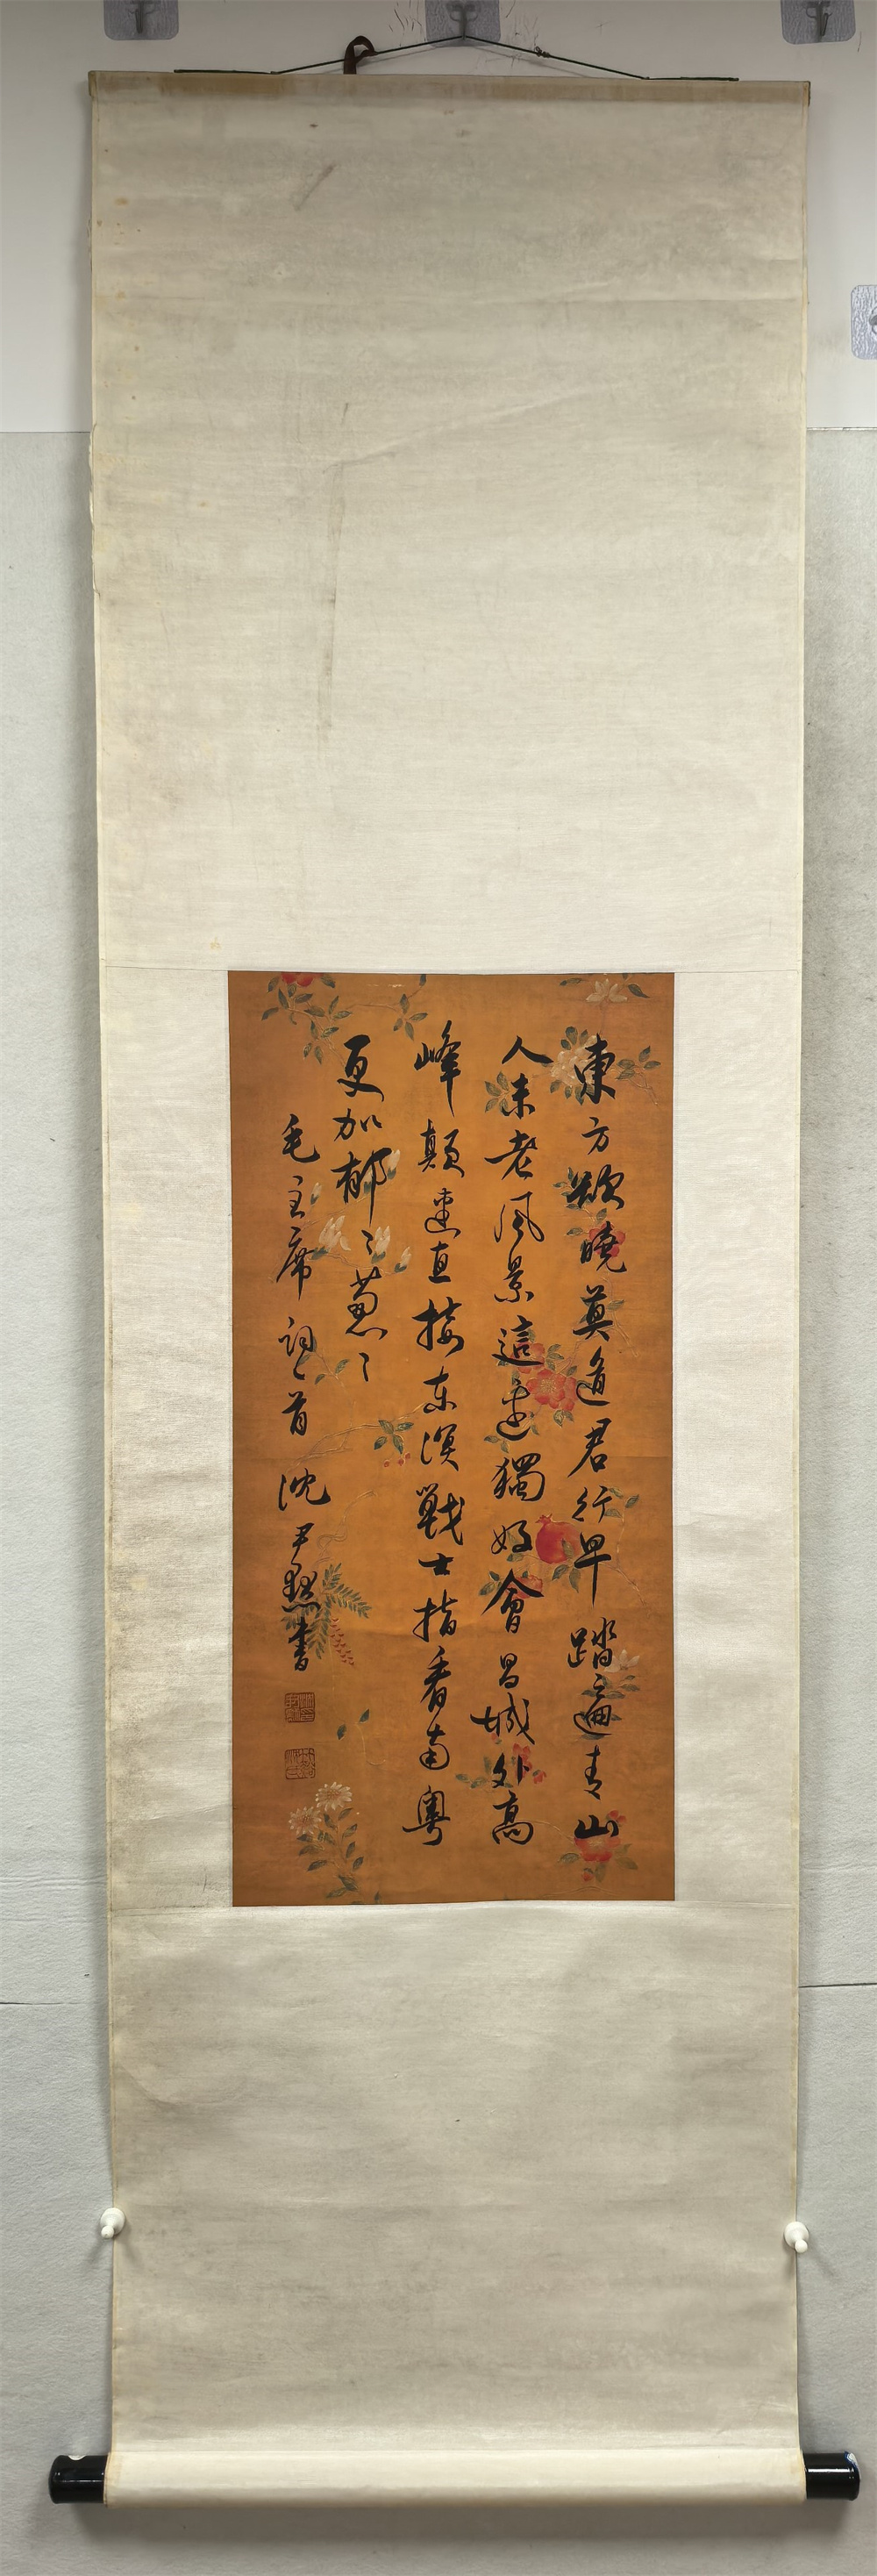 東方欲曉莫道君行早踏遍青山
人未老風景這邊獨好會昌城外高
峰顛連直接东溟戰士指看南粵
更加郁〻葱〻
毛主席詞一首 沈尹默書